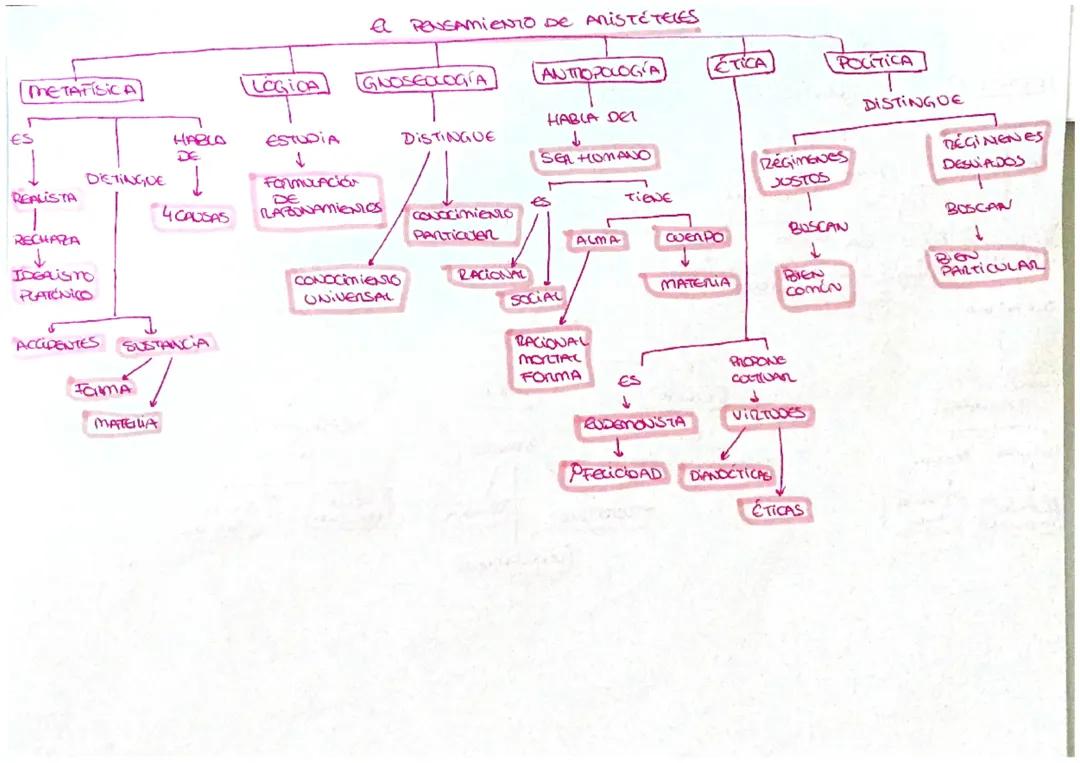 El PENSAMIENTO DE ARISTÓTELES
METAFÍSICA
LÓGICA
GNOSEOLOGÍA
ANTROPOLOGÍA
ÉTICA
POLÍTICA
ES
REALISTA
RECHAZA
IDEALISMO
PLATÓNICO
DISTINGUE
ACCIDENTES
SUSTANCIA
FORMA
MATERIA
HABLA
DE
4 CAUSAS
ESTUDIA
FORMULACIÓN
DE
RAZONAMIENTOS
DISTINGUE
CONOCIMIENTO
UNIVERSAL
CONOCIMIENTO
PARTICULER
HABLA DEL
SER HUMANO
ES
RACIONAL
SOCIAL
TIENE
ALMA
RACIONAL
MORTAL
FORMA
CUERPO
MATERIA
ES
EUDEMONISTA
FELICIDAD
PROPONE
CULTIVAR
VIRTUDES
DIANOÉTICAS
ÉTICAS
DISTINGUE
RÉGIMENES
JUSTOS
BUSCAN
BIEN
COMÚN
RÉGIMENES
DESVIADOS
BUSCAN
BIEN
PARTICULAR